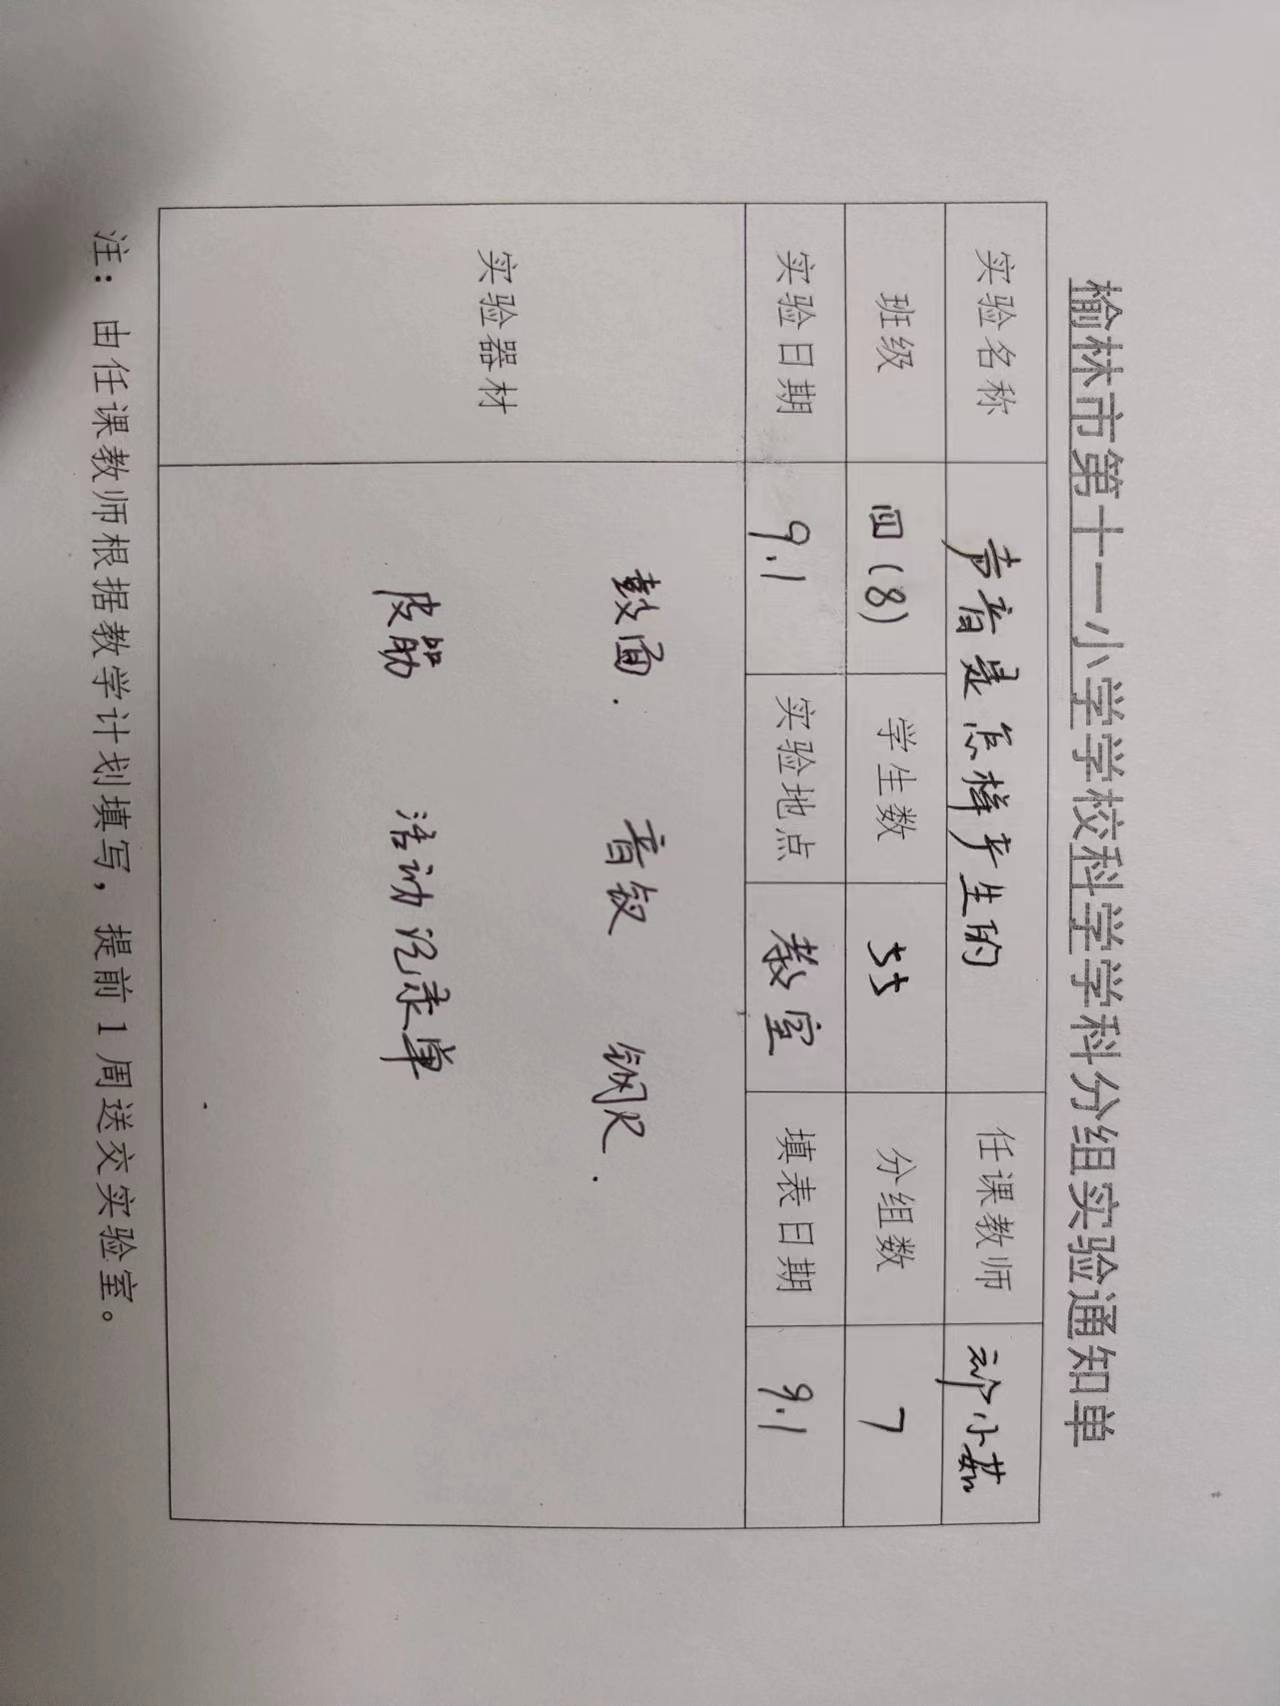 榆林市第十一小学学校科学学科分组实验通知单
实验名称 声音是怎样产生的 任课教师 邓小茹
班级 四(8) 学生数 55 分组数 7
实验日期 9.1 实验地点 教室 填表日期 9.1
实验器材 鼓面. 音钗 钢尺.
皮筋 活动记录单
注：由任课教师根据教学计划填写，提前1周送交实验室。